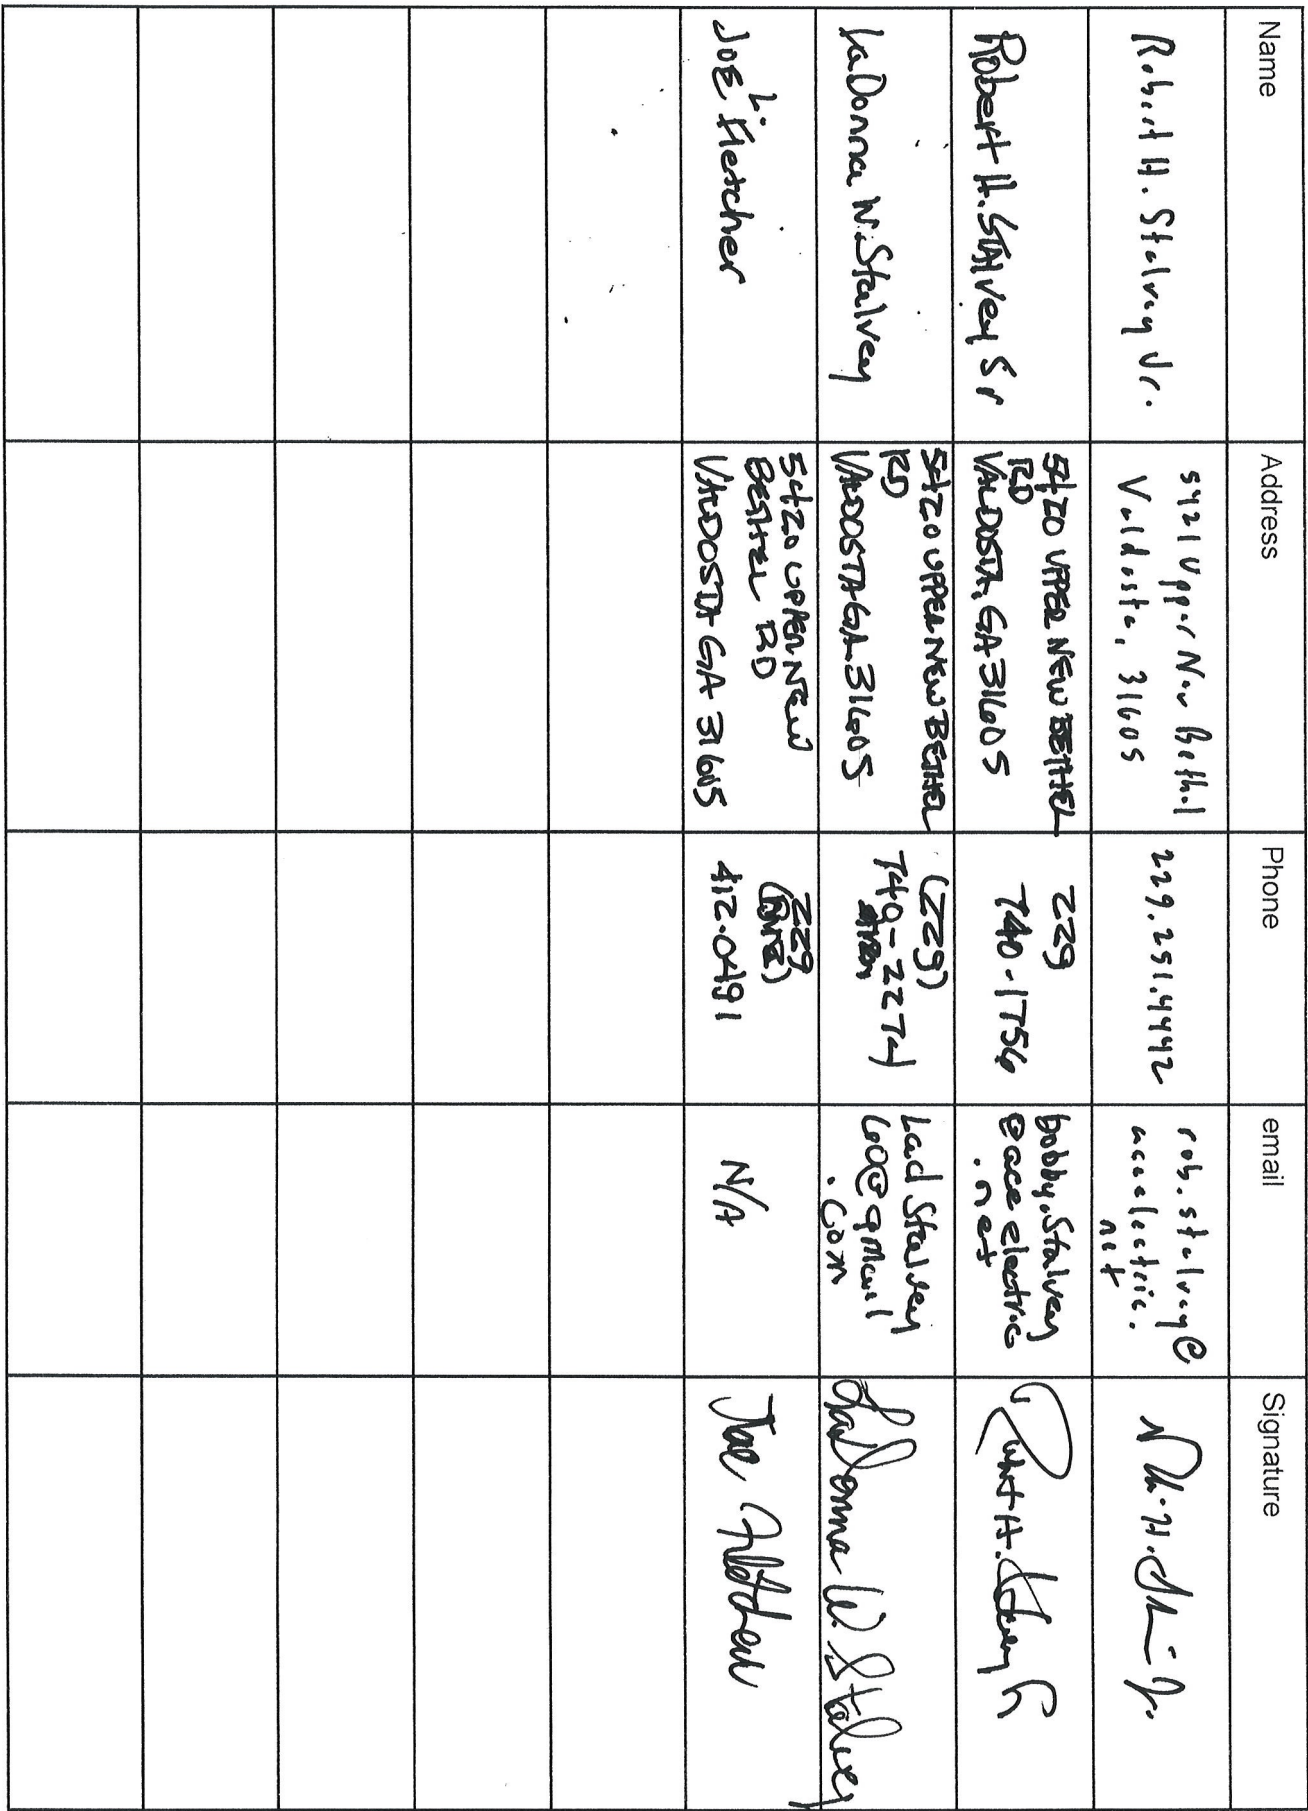 Name Address Phone email Signature
Robert H. Stalvey Jr.
5421 Upper New Bethel
Valdosta, 31605
229.251.4442
rob.stalvey@
aceelectric.
net
Robert H. STAlvey Sr
5420 UPPER NEW BETHEL
RD
VALDOSTA, GA 31605
229
740-1756
bobby.Stalvey
@ace electric
.net
Robert H. Stalvey Sr
LaDonna W. Stalvey
5420 UPPER NEW BETHEL
RD
VALDOSTA GA 31605
(229)
740-2274
Lad Stalvey
60@gmail
.com
LaDonna W Stalvey
JOE L. Fletcher
5420 UPPER NEW
BETHEL RD
VALDOSTA GA 31605
229
412-0491
N/A
Joe Fletcher